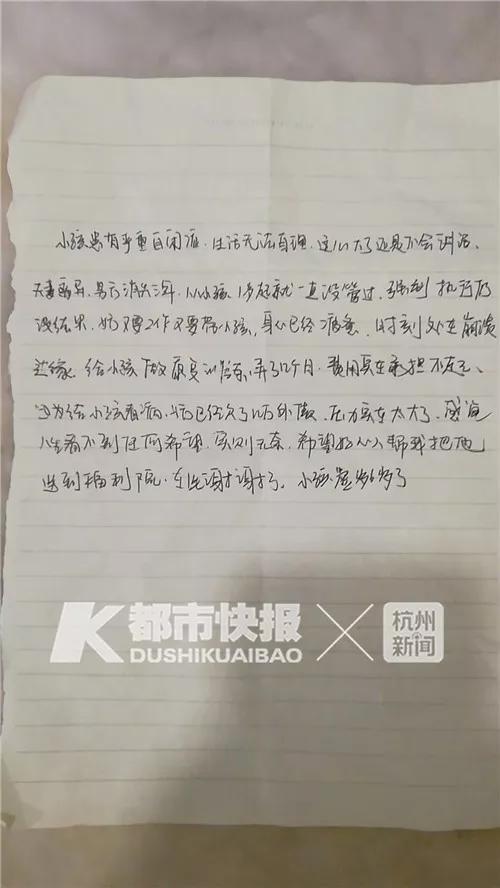 小孩患有严重自闭症.生活无法自理.这么大了还是不会讲话.
夫妻离异.男方消失3年.从小孩1岁起就一直没管过.强制执行仍
没结果.她又要工作又要带小孩,身心已经疲惫.时刻处在崩溃
边缘.给小孩做康复训练,弄了几个月.费用实在承担不起了、
因为给小孩看病.我已经欠了几万外债.压力实在太大了.感觉
人生看不到任何希望.实则无奈.希望好心人帮我把他
送到福利院.在此谢谢了。小孩虚岁6岁了
都市快报
DUSHIKUAIBAO
杭州
新闻